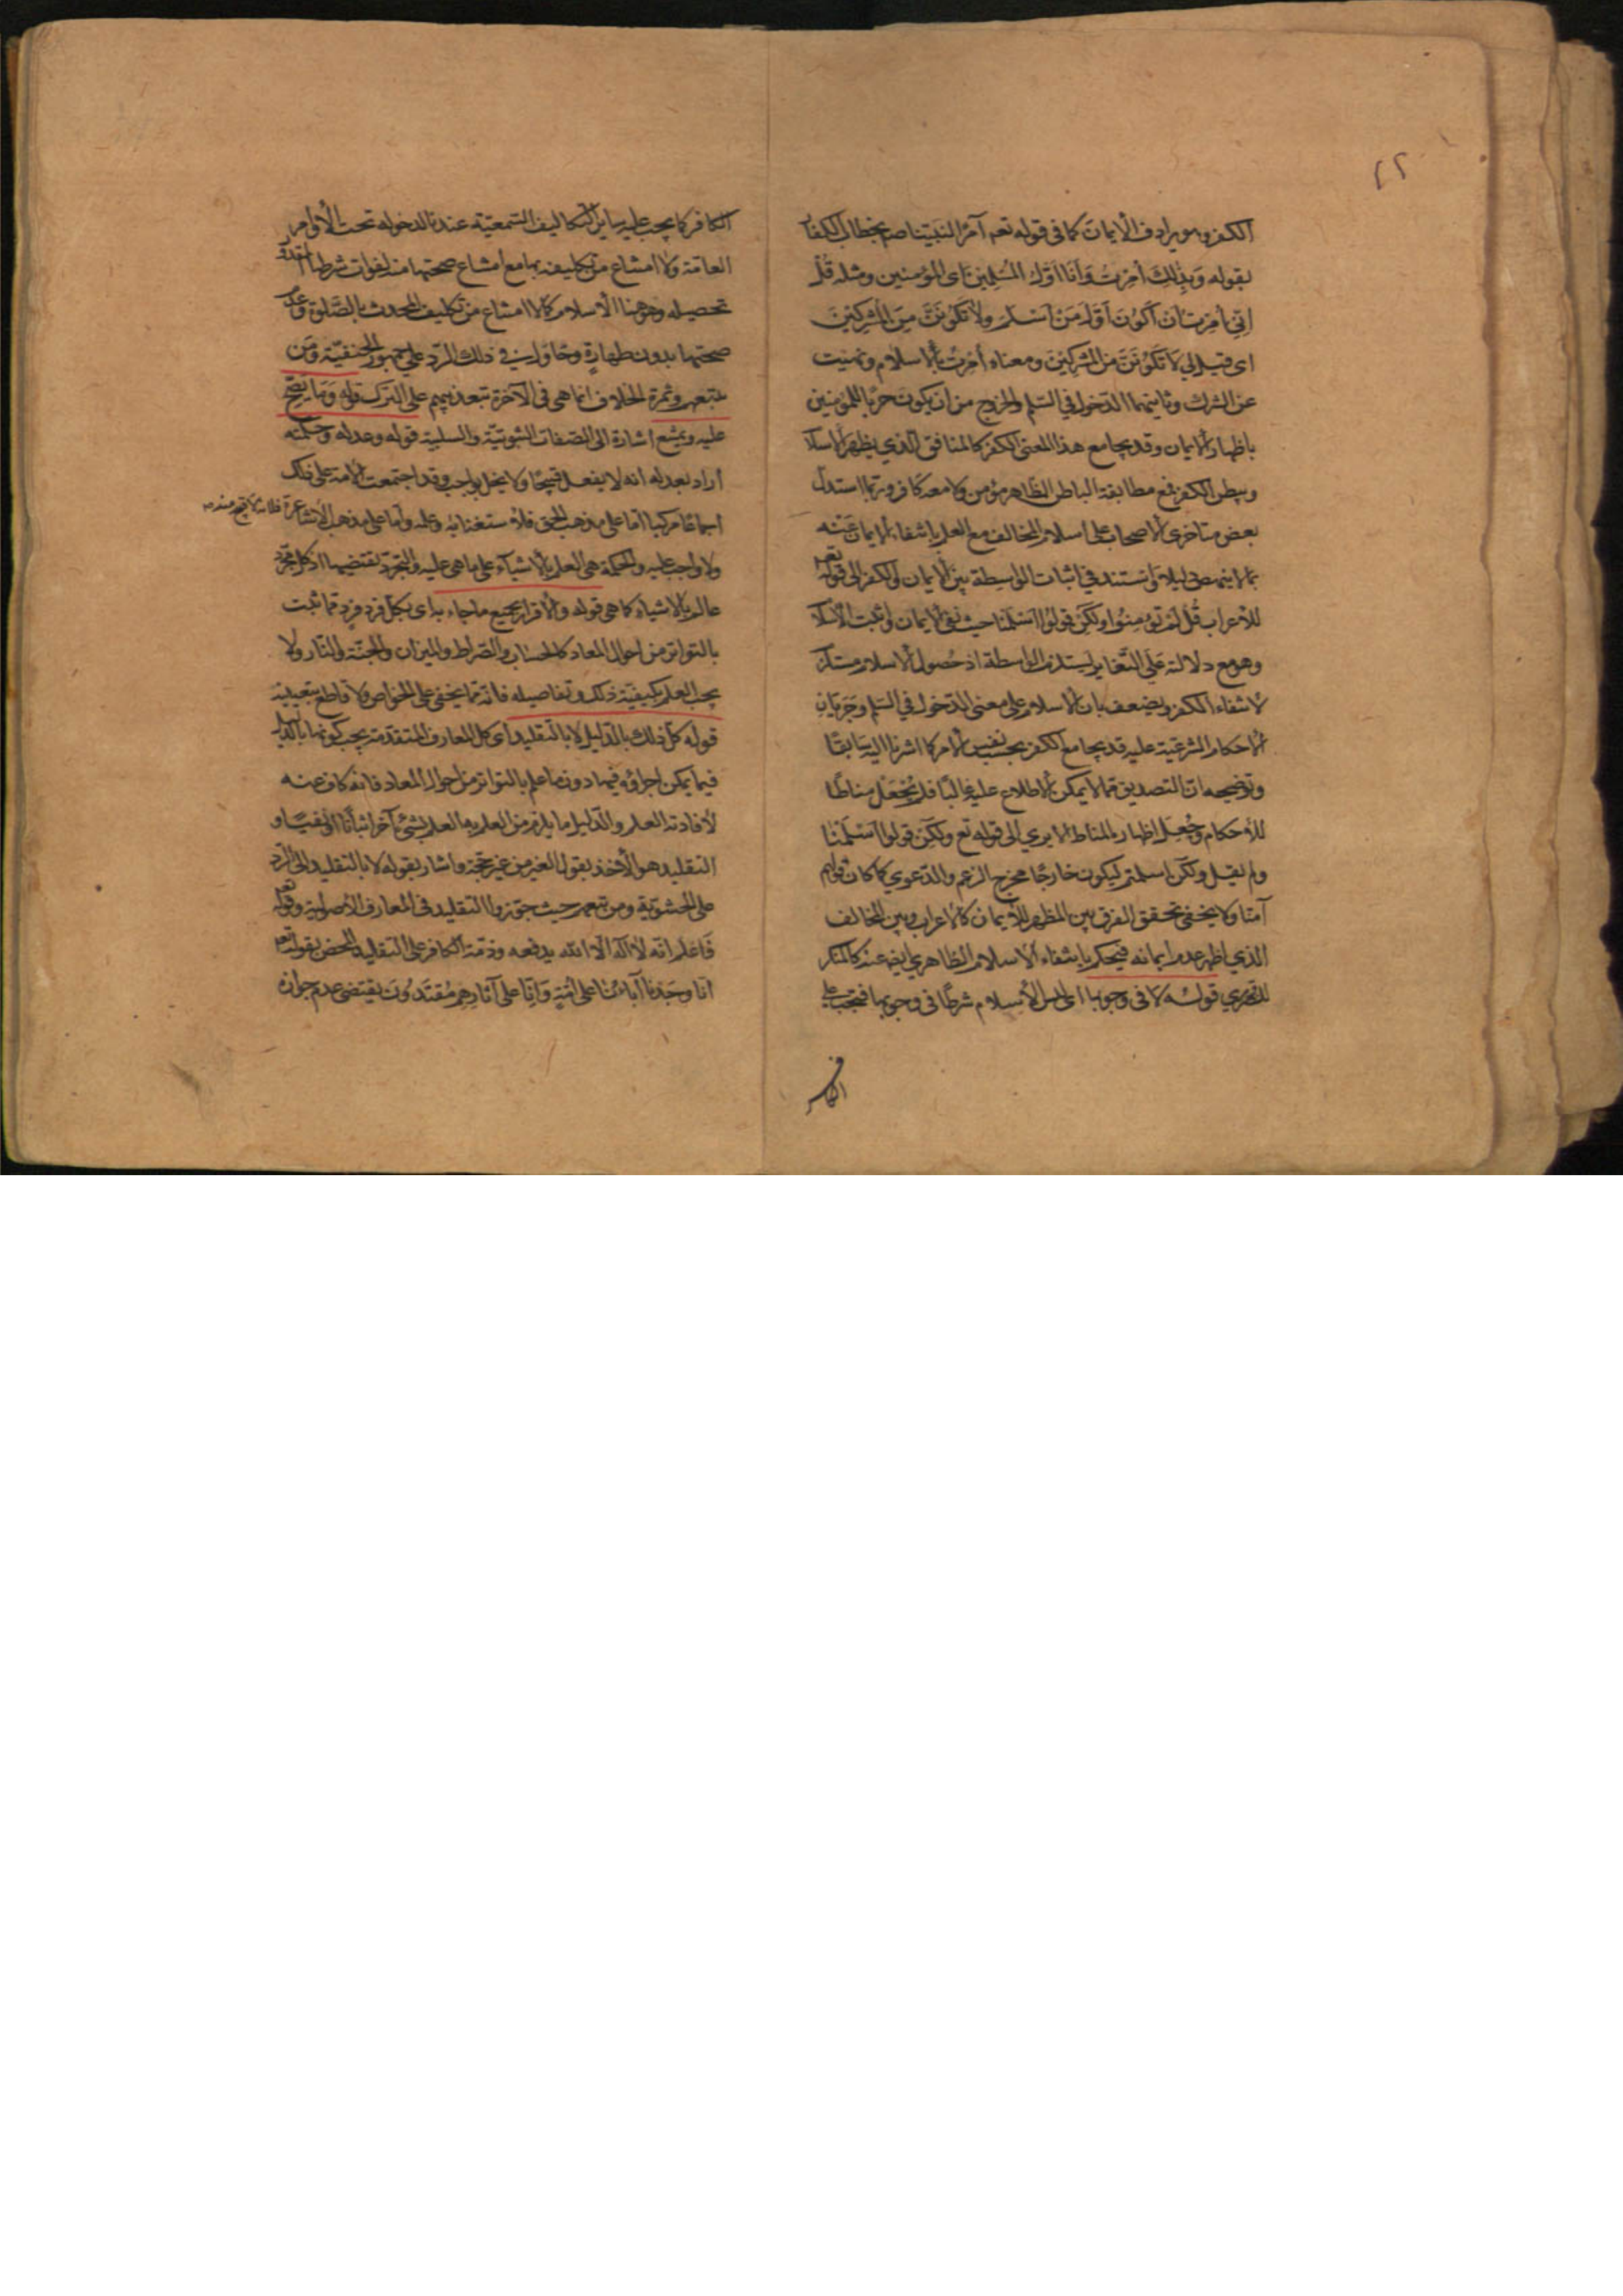 ٢٢
الكفر وهو يرادف الأيمان كما في قوله تعم آمرًا لنبينا صم بخطاب الكفار
بقوله وَبِذٰلِكَ أُمِرْتُ وَأَنَا أَوَّلُ المُسْلِمِينَ اى المؤمنين ومثله قُلْ
اِنِّي أُمِرْتُ أن أكُونَ أوَّلَ مَنْ أسْلَمَ ولا تَكُونَنَّ مِنَ المُشْرِكِينَ
اى قيل لي لا تَكُونَنَّ مِنَ المشركينَ ومعناه أُمِرْتُ بالاسلام ونهيت
عن الشرك وثانيهما الدّخول في السّلم والخروج من ان يكون حربًا للمؤمنين
باظهار الايمان وقد يجامع هذا المعنى الكفر كالمنافق الّذي يظهر الاسلا
ويبطن الكفر فمع مطابقة الباطن الظاهر مؤمن ولا معه كافر وربما استدل
بعض متاخرى الاصحاب على اسلام المخالف مع العلم بانتفاء الايمان عَنْه
بما لا ينهض دليلا واستند في اثبات الواسطة بين الايمان والكفر الى قوله تعم
للأعراب قُلْ لَمْ تُؤمِنُوا ولكن قولُوا اَسْلَمْنا حيث نفى الايمان واثبت الاسلا
وهو مع دلالته عَلَى التّغاير يستلزم الواسطة اذ حُصول الاسلام مستلزم
لانتفاء الكفر ويضعف بان الاسلام على معنى الدّخول في السّلم وجَرَيَانِ
الأحكام الشرعيّة عليه قد يجامع الكفر بحسب نفس الامر كما اشرنا اليه سَابقًا
وتوضيحه انّ التصديق ممّا لا يمكن الاطلاع عليه غالبًا فلم يُجْعَلْ مناطًا
للأحكام وجُعِلَ اظهاره المناط الا يرى الى قوله تع ولكن قولوا اَسْلَمْنا
ولم يقل ولكن اسلمتم ليكون خارجًا مخرج الزعم والدّعوي كما كان قولهم
آمنّا ولا يخفى تحقق الفرق بين المظهر للايمان كالاعراب وبين المخالف
الذي اظهر عدم ايمانه فيحكم بانتفاء الاسلام الظاهري ايضا عنه كالمنكر
قولُه لا في وجوبها اى ليس الأسلام شرطًا في وجوبها فتجب على
الكافر
الكافر كما يجب عليه ساير التكاليف السّمعيّة عندنا لدخوله تحت الأوامر
العامّة ولا امتناع من تكليفه بها مع امتناع صحتها منه لفوات شرطها المقدور
تحصيله وهو هنا الاسلام كما لا امتناع من تكليف المحدث بالصَّلوة وعدم
صحتها بدون طهارةٍ وحاول في ذلك الرّد على جمهور الحنفيّة ومَن
تبعهم وثمرة الخلاف انما هى في الآخرة تبعذيبهم على الترك قوله وَمَا يَصِحّ
عليه ويمتنع اشارة الى الصّفات الثبوتيّة والسلبية قوله وعدله وحكمته
أراد بعدله انه لا يفعل قبيحًا ولا يخل بواجب وقد اجتمعت الامة على ذلك
اجماعًا مركبا امّا على مذهب الحق فلاستغنائه وعلمه وأما على مذهب الأشاعرة فلانه لا قبيح منه
ولا واجب عليه والحكمة هي العلم بالأشياء على ما هي عليه والتجرّد يقتضيها اذ كل مجرّد
عالم بالاشياء كما هي قوله والاقرار بجميع ما جاء به اى بكلّ فردٍ فردٍ ممّا ثبت
بالتواتر من احوال المعاد كالحساب والصّراط والميزان والجنّة والنّار ولا
يجب العلم بكيفيّة ذلك وتفاصيله فانّه ممّا يخفى على الخواص ولا قاطع بتعيينه
قوله كلّ ذلك بالدّليل لا بالتقليد اى كل المعارف المتقدّمة يجب كونها بالدليل
فيما يمكن اجراؤه فيها دون ما علم بالتواتر من احوال المعاد فانه كاف عنه
لأفادته العلم والدّليل ما يلزم من العلم به العلم بشئ آخر اثباتًا او نفيًا و
التقليد هو الأخذ بقول الغير من غير حجّة واشار بقوله لا بالتقليد الى الرّد
على الحشويّة ومن تبعهم حيث جوّزوا التقليد في المعارف الأصولية وقوله تعم
فَاعْلَم انّه لا اله الّا الله يدفعه وذمّة الكافر على التقليد المحض بقوله تعم
انّا وجَدنا آباءَنا على اُمّةٍ وَاِنّا على آثارِهِم مُقتَدُونَ يقتضى عدم جوازه